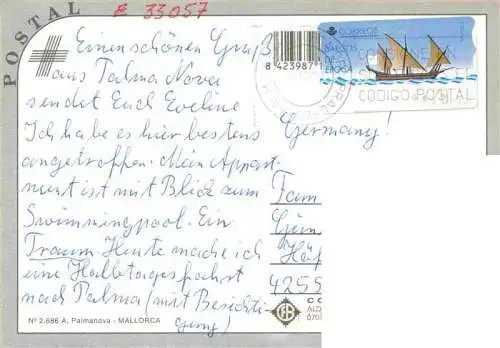 POSTAL
E 33057
Einen schönen Gruß
aus Palma Nova
sendet Euch Eveline
Ich habe es hier bestens
angetroffen. Mein Appart-
ment ist mit Blick zum
Swimmingpool. Ein
Traum. Heute mache ich
eine Halbtagesfahrt
nach Palma (mit Besichti-
gung)
Nº 2.686 A. Palmanova - MALLORCA
8 423987
CORREOS
CODIGO POSTAL
Germany!
Fam
4255